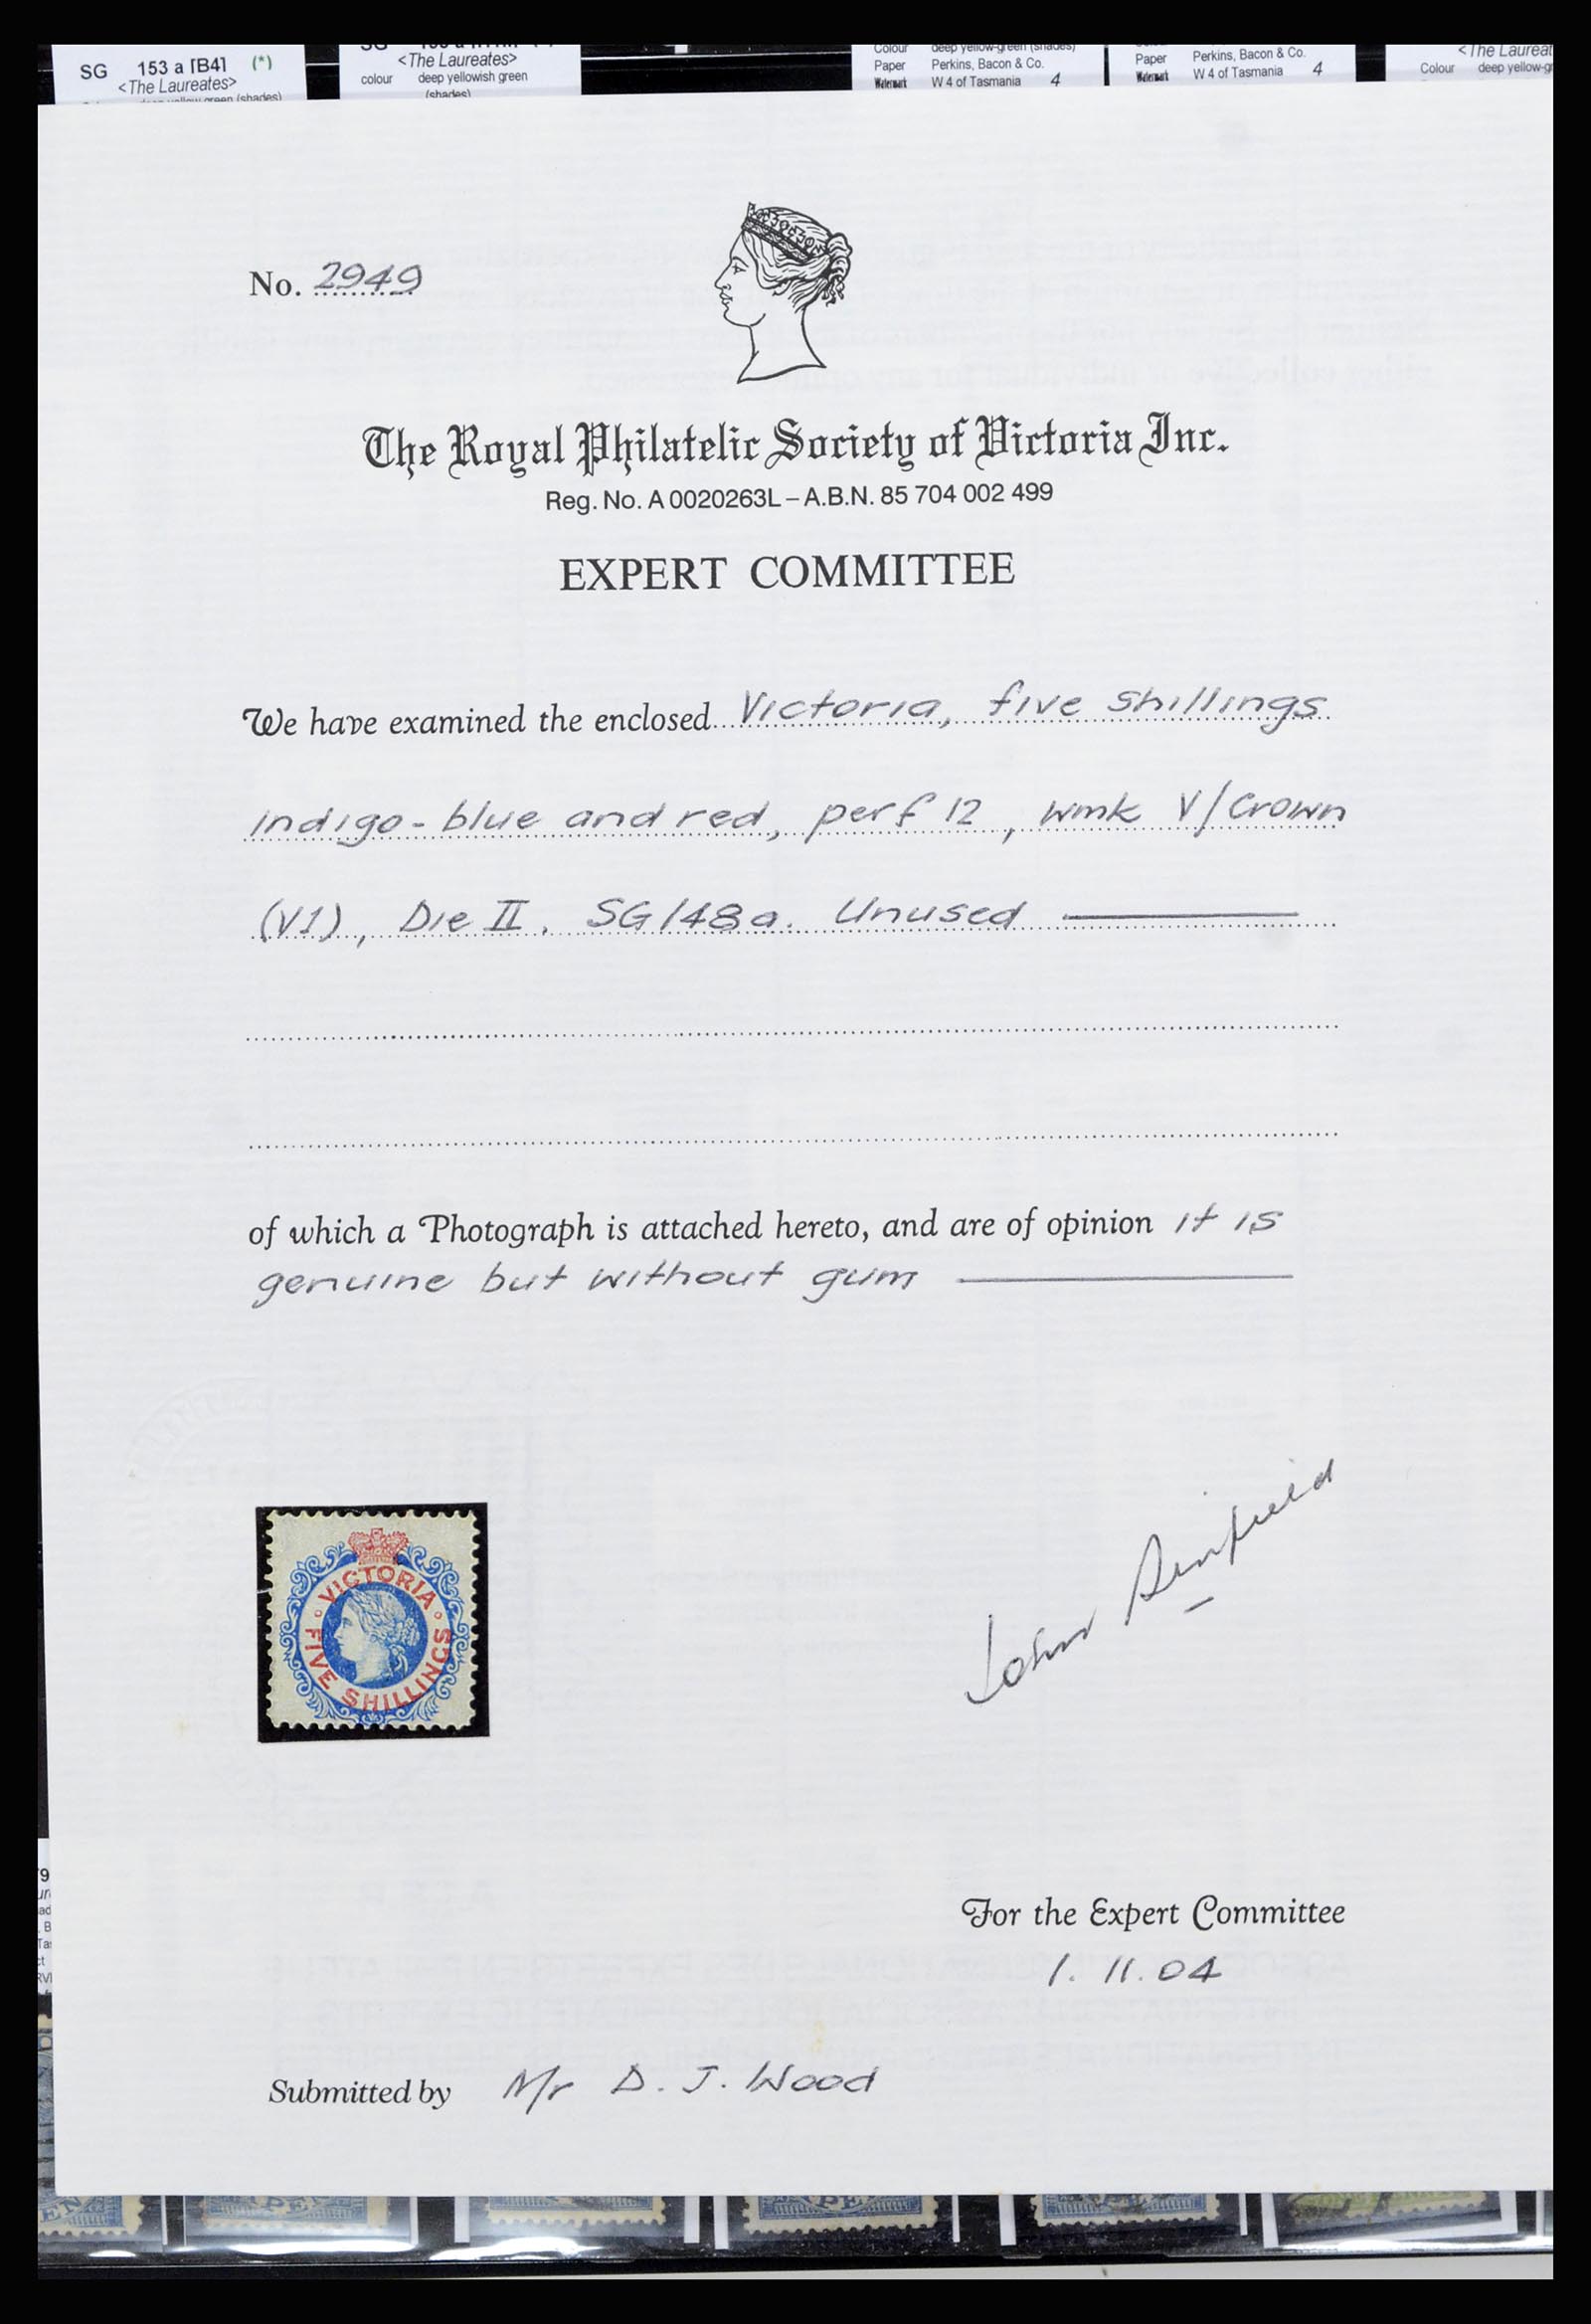 SG 153 a [B4] (*)
<The Laureates>
<The Laureates>
colour deep yellowish green
(shades)
Colour deep yellow-green (shades)
Paper Perkins, Bacon & Co.
Watermark W 4 of Tasmania 4
Paper Perkins, Bacon & Co.
Watermark W 4 of Tasmania 4
<The Laureat
Colour deep yellow-g
No. 2949
The Royal Philatelic Society of Victoria Inc.
Reg. No. A 0020263L – A.B.N. 85 704 002 499
EXPERT COMMITTEE
We have examined the enclosed Victoria, five shillings
indigo-blue and red, perf 12, wmk V/Crown
(V1), Die II, SG 148a. Unused
of which a Photograph is attached hereto, and are of opinion it is
genuine but without gum
VICTORIA
FIVE SHILLINGS
John Sinfield
For the Expert Committee
1. 11. 04
Submitted by Mr D. J. Wood